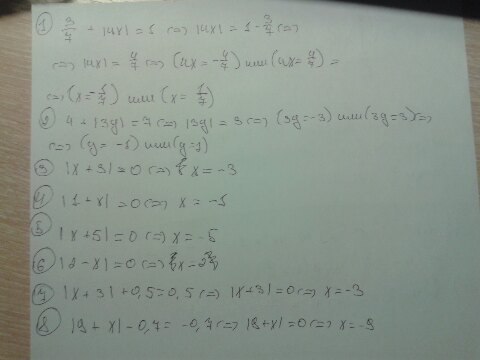 ① 3/7 + |4x| = 1 <=> |4x| = 1 - 3/7 <=>
<=> |4x| = 4/7 <=> (4x = -4/7) или (4x = 4/7) =
<=> (x = -1/7) или (x = 1/7)
② 4 + |3y| = 7 <=> |3y| = 3 <=> (3y = -3) или (3y = 3) <=>
<=> (y = -1) или (y = 1)
③ |x + 3| = 0 <=> x = -3
④ |1 + x| = 0 <=> x = -1
⑤ |x + 5| = 0 <=> x = -5
⑥ - x| = 0 <=>
⑦ |x + 3| + 0,5 = 0,5 <=> |x + 3| = 0 <=> x = -3
⑧ |9 + x| - 0,7 = -0,7 <=> |9 + x| = 0 <=> x = -9